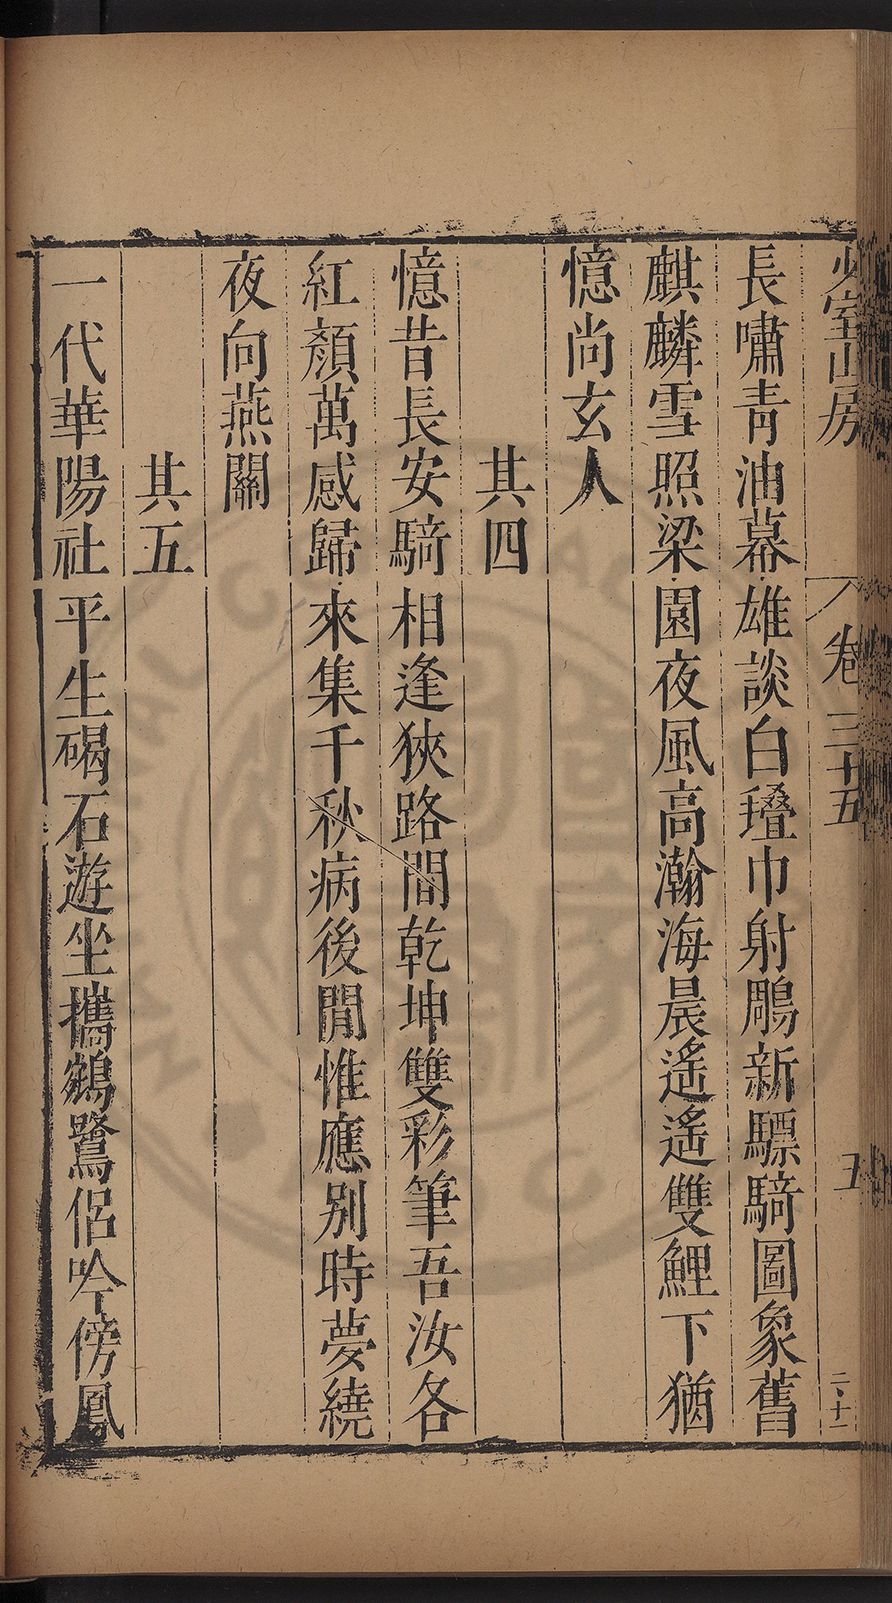 少室山房
卷三十五
五
二·十一
長嘯青油幕雄談白㲲巾射鵰新驃騎圖象舊
麒麟雪照梁園夜風高瀚海晨遙遙雙鯉下猶
憶尚玄人
其四
憶昔長安騎相逢狹路間乾坤雙彩筆吾汝各
紅顏萬感歸來集千秋病後閒惟應別時夢繞
夜向燕關
其五
一代華陽社平生碣石遊坐攜鵷鷺侶吟傍鳳